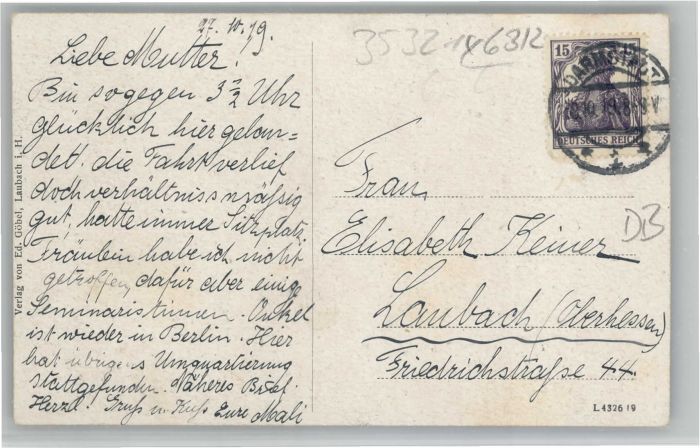 27.10.19.
Liebe Mutter!
Bin so gegen 3 1/2 Uhr
glücklich hier gelan=
det! die Fahrt verlief
doch verhältnissmässig
gut, hatte immer Sitzplatz
Fräulein habe ich nicht
getroffen, dafür aber einige
Seminaristinnen. Onkel
ist wieder in Berlin. Hier
hat übrigens Umquartierung
stattgefunden. Näheres Brief.
Herzl. Gruss u. Kuss Eure Mali
Verlag von Ed. Göbel, Laubach i. H.
35321 x6312
15
DARMSTADT
DEUTSCHES REICH
Frau
Elisabeth Keiner
DB
Laubach (Oberhessen)
Friedrichstraße 44.
L 4326 19